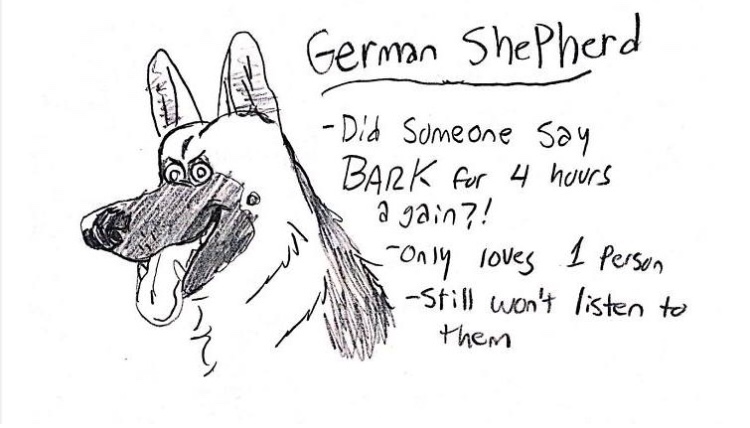 German Shepherd
-Did Someone Say
BARK for 4 hours
again?!
-Only loves 1 Person
-Still won't listen to
them